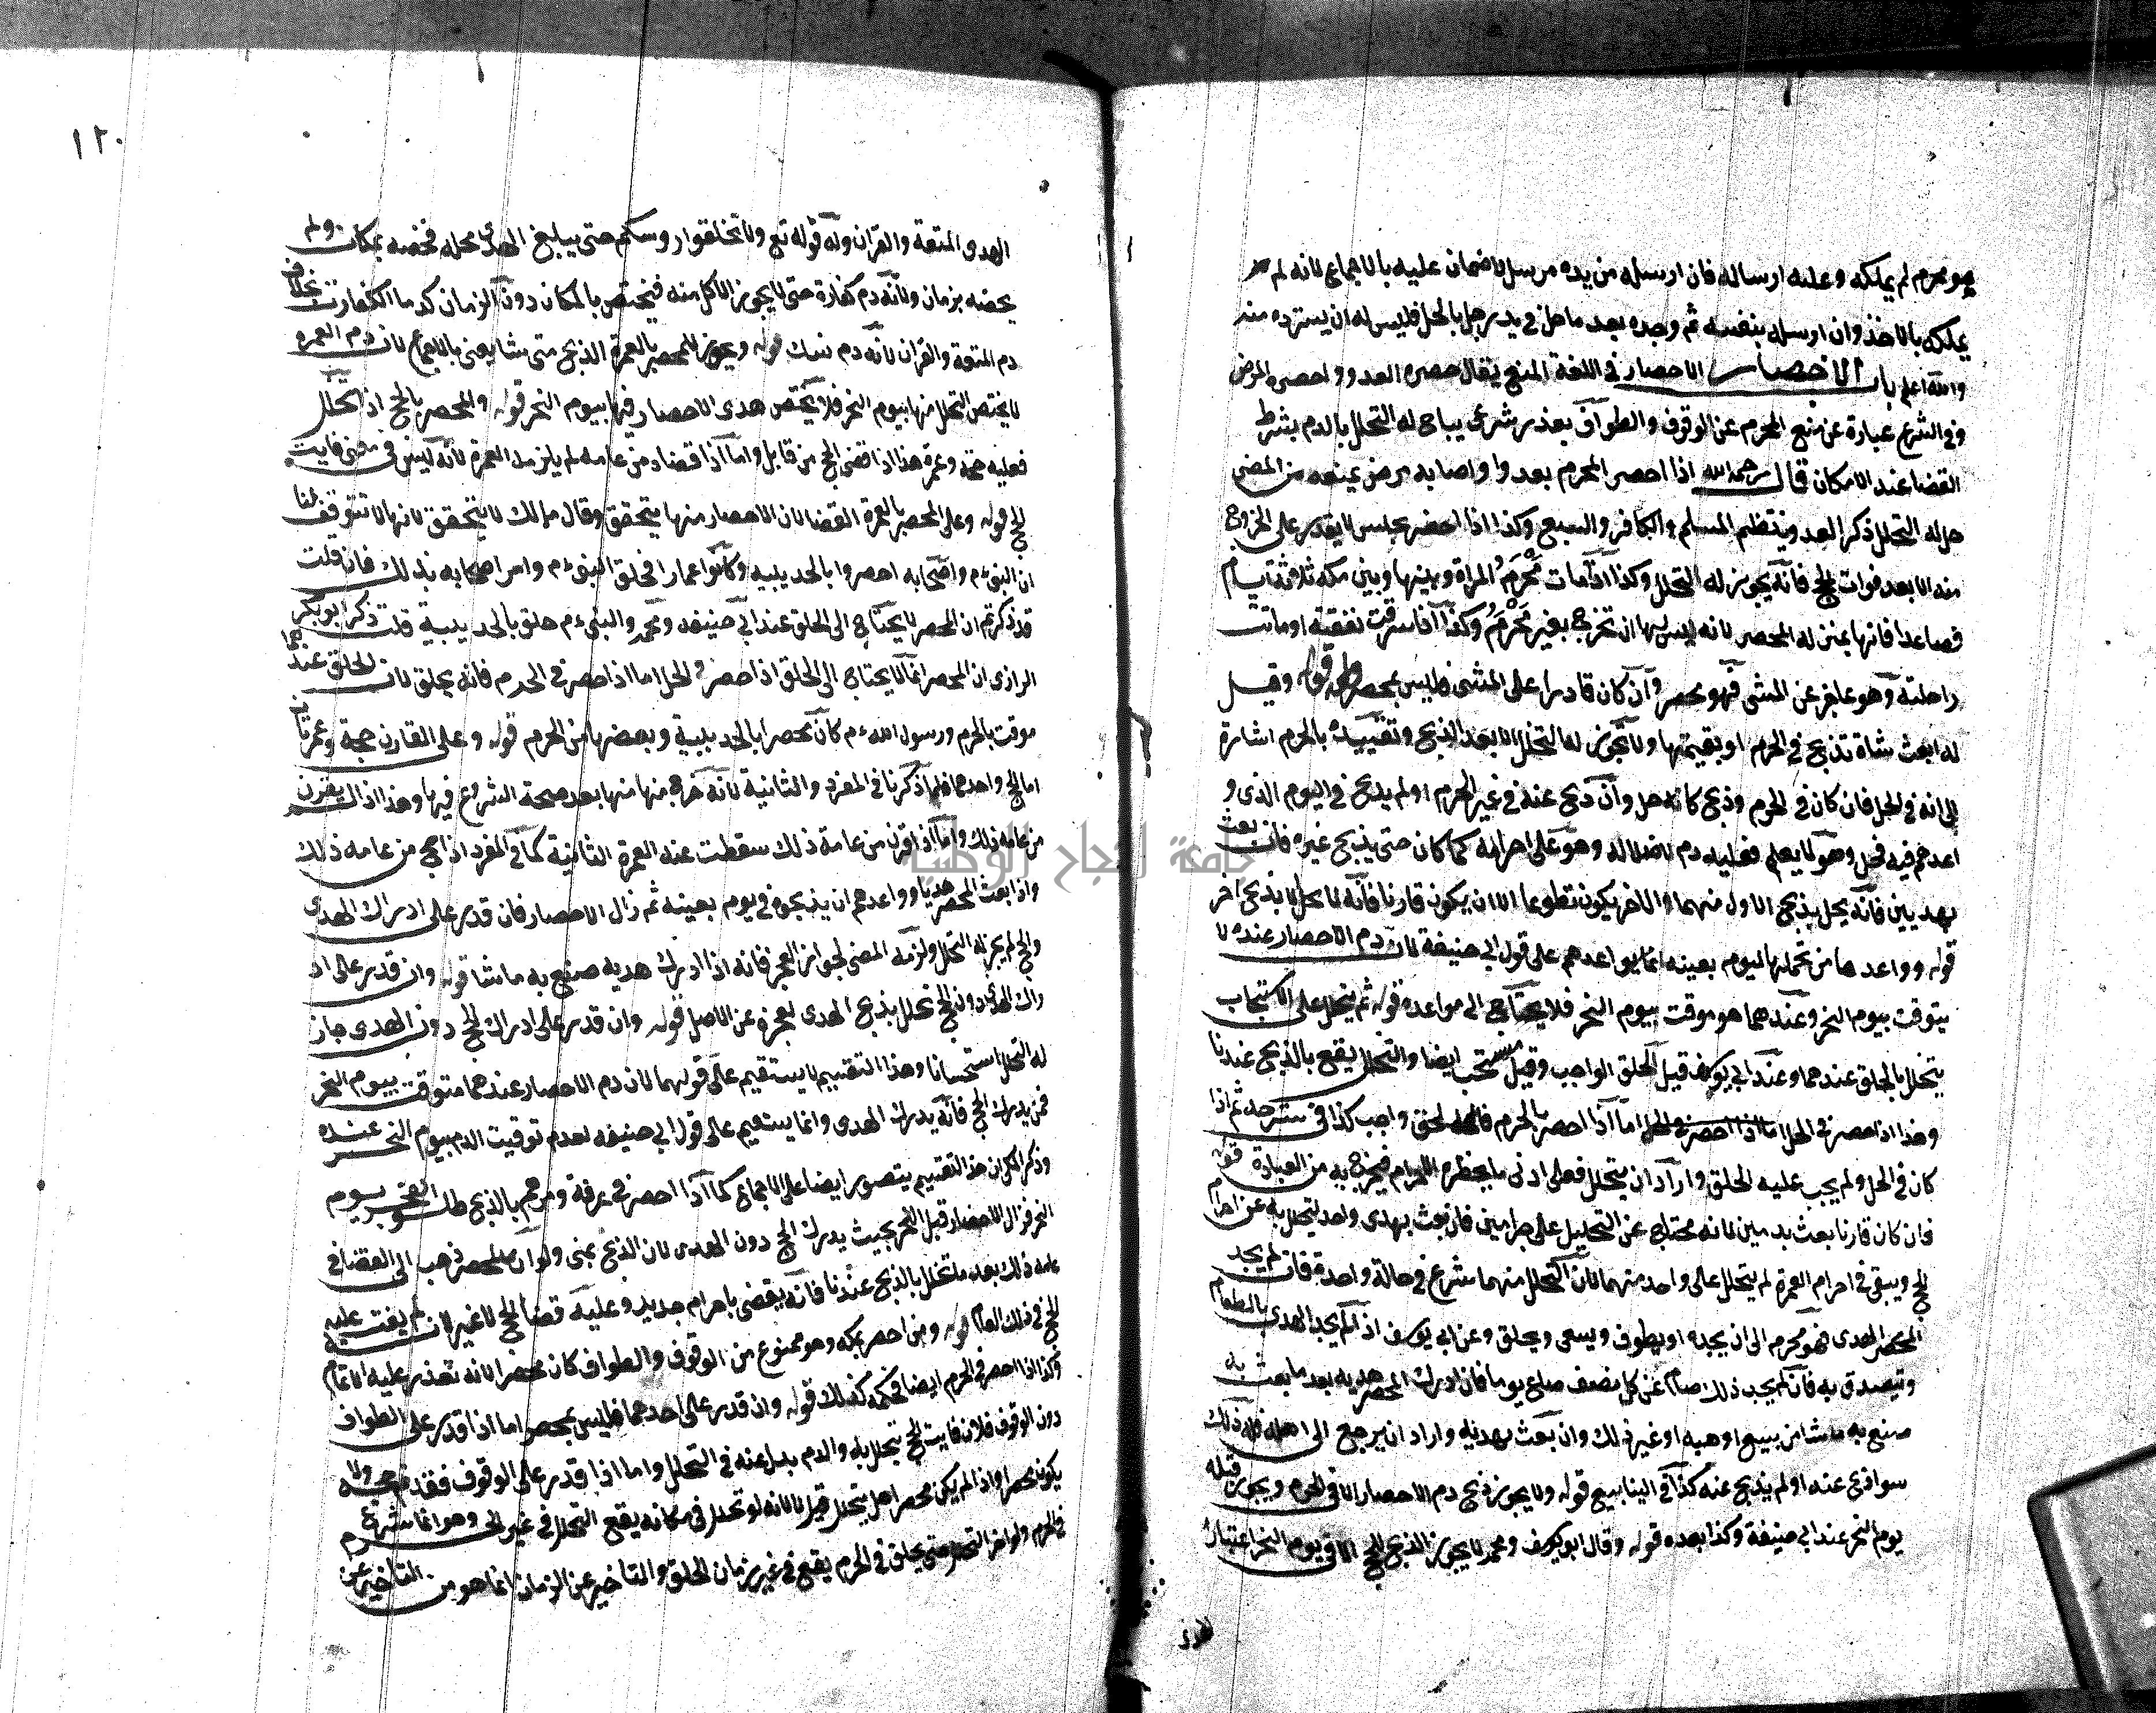 هو محرم لم يملكه وعليه ارساله فان ارسله من يده مرسل لا ضمان عليه بالاجماع لانه لم
يملكه بالاخذ وان ارسله بنفسه ثم وجده بعد ما حل في يد رجل بالحل فليس له ان يسترده منه
والله اعلم باب الاحصار الاحصار في اللغة المنع يقال حصره العدو واحصره المرض
وفي الشرع عبارة عن منع المحرم عن الوقوف والطواف بعذر شرعي يباح له التحلل بالدم بشرط
القضا عند الامكان قال رحمه الله اذا احصر المحرم بعدو او اصابه مرض يمنعه من المضي
حل له التحلل ذكر العدو ينتظم المسلم والكافر والسبع وكذا اذا احصر بحبس لا يقدر على الخروج
منه الا بعد فوات الحج فانه يجوز له التحلل وكذا اذا مات محرم المراة وبينها وبين مكه ثلاثة ايام
فصاعدا فانها بمنزلة المحصر لانه ليس لها ان تخرج بغير محرم وكذا اذا سرقت نفقته او ماتت
راحلته وهو عاجز عن المشي فهو محصر وان كان قادرا على المشي فليس بمحصر قوله وقيل
له ابعث شاة تذبح في الحرم او بقيمتها ولا يجوز له التحلل الا بعد الذبح وتقييده بالحرم اشارة
الى انه في الحل فان كان في الحرم وذبح كانه حل وان ذبح عنه في غير الحرم او لم يذبح في اليوم الذي و
اعدهم فيه فحل وهو لا يعلم فعليه دم لاحلاله وهو على احرامه كما كان حتى يذبح غيره فان بعث
بهديين فانه يحل بذبح الاول منهما والاخر يكون تطوعا الا ان يكون قارنا فانه لا يحل الا بذبح اخر
قوله وواعد ها من تحملها اليوم بعينه انما يواعدهم على قول ابي حنيفة لان دم الاحصار عنده لا
يتوقت بيوم النحر وعندهما هو موقت بيوم النحر فلا يحتاج الى مواعده قوله ثم يتحلل على الاستحباب
يتحلل بالحلق عندهما وعند ابي يوسف قيل الحلق الواجب وقيل مستحب ايضا والتحلل يقع بالذبح عندنا
وهذا اذا احصر في الحل اما اذا احصر بالحرم فالحلق واجب كذا في شرحه ثم اذا
كان في الحل ولم يجب عليه الحلق واراد ان يتحلل فعل ادنى ما يحظره الاحرام فيخرج به من العبادة قوله
فان كان قارنا بعث بدمين لانه محتاج عن التحليل على احرامين فان بعث بهدي واحد ليتحلل به عن احرام
الحج ويبقى في احرام العمرة لم يتحلل على واحد منهما لان التحلل منهما شرع في حالة واحدة فان لم يجد
المحصر الهدي فهو محرم الى ان يجده او يطوف ويسعى ويحلق وعن ابي يوسف اذا لم يجد الهدي بالطعام
وتيصدق به فان لم يجد ذلك صام عن كل نصف صاع يوما فان ادرك المحصر هديه بعد ما بعث به
صنع به ما شا من بيع او هبه او غير ذلك وان بعث بهديه واراد ان يرجع الى اهله فله ذلك
سوا ذبح عنه او لم يذبح عنه كذا في الينابيع قوله ولا يجوز ذبح دم الاحصار الا في الحرم ويجوز قبله
يوم النحر عند ابي حنيفة وكذا بعده قوله وقال ابو يوسف ومحمد لا يجوز الذبح للحج الا في يوم النحر اعتبارا
١٢٠
الهدي المتعة والقران وله قوله تع ولا تحلقوا روسكم حتى يبلغ الهدي محله فخصه بمكان ولم
يخصه بزمان ولانه دم كفارة حتى لا يجوز الاكل منه فيختص بالمكان دون الزمان كدما الكفارت بخلاف
دم المتعة والقران لانه دم نسك قوله ويجوز للمحصر بالعمرة الذبح متى شا يعني بالاجماع لان دم العمره
لا يختص التحلل منها بيوم النحر فلا يختص هدي الاحصار فيها بيوم النحر قوله والمحصر بالحج اذا تحلل
فعليه حجة وعمرة هذا اذا قضى الحج من قابل واما اذا قضاه من عامه لم يلزمه العمرة لانه ليس في معنى فايت
الحج قوله وعلى المحصر بالعمرة القضا لان الاحصار منها يتحقق وقال مالك لا يتحقق لانها لا تتوقف لنا
ان النبي ءم واصحابه احصروا بالحديبيه وكانوا عمارا فحلق النبي ءم وامر اصحابه بذلك فان قلت
قد ذكرتم ان المحصر لا يحتاج الى الحلق عند ابي حنيفه ومحمد والنبي ءم حلق بالحديبية قلت ذكر ابو بكر
الرازي ان المحصر انما لا يحتاج الى الحلق اذا احصر في الحل اما اذا احصر في الحرم فانه يحلق لان الحلق عندهما
موقت بالحرم ورسول الله ءم كان محصرا بالحديبية وبعضها من الحرم قوله وعلى القارن حجة وعمرتان
اما الحج واحدهما فلما ذكرنا في المفرد والثانية لانه خرج منها بعد صحة الشروع فيها وهذا اذا لم يقرن
من عامه ذلك واما اذا قرن من عامة ذلك سقطت عنه العمرة الثانية كما في المفرد اذا حج من عامه ذلك
واذا بعث المحصر هديا وواعدهم ان يذبحوه في يوم بعينه ثم زال الاحصار فان قدر على ادراك الهدي
والحج لم يجز له التحلل ولزمه المضي لجواز العجز فانه اذا ادرك هديه صنع به ما شا قوله وان قدر على اد
راك الهدي دون الحج تحلل بذبح الهدي لعجزه عن الاصل قوله وان قدر على ادراك الحج دون الهدي جاز
له التحلل استحسانا وهذا التقسيم لا يستقيم على قولهما لان دم الاحصار عندهما متوقت بيوم النحر
فمن يدرك الحج فانه يدرك الهدي وانما يستقيم على قول ابي حنيفه لعدم توقيت الدم بيوم النحر عنده
وذكر الكرخي ان هذا التقسيم يتصور ايضا على الاجماع كما اذا احصر في عرفة وامرهم بالذبح طلوع الفجر يوم
النحر فزال الاحصار قبل الفجر بحيث يدرك الحج دون الهدي لان الذبح بمنى ولو ان المحصر ذهب الى القضا في
عامه ذلك بعد ما تحلل بالذبح عندنا فانه يقضي باحرام جديد وعليه قضا الحج لا غير لانه لم يفت عليه
الحج في ذلك العام قوله ومن احصر بمكه وهو ممنوع من الوقوف والطواف كان محصرا لانه تعذر عليه الاتمام
وكذا اذا احصر في الحرم ايضا فحكمه كذلك قوله وان قدر على احدهما فليس بمحصر اما اذا قدر على الطواف
دون الوقوف فلان فايت الحج يتحلل به والدم بدل عنه في التحلل واما اذا قدر على الوقوف فقد تم حجه ولا
يكون محصرا واذا لم يكن محصرا هل يتحلل قيل لا لانه لو تحلل في مكانه يقع التحلل في غير الحرم وهو انما شرع
في الحرم ولو اخر التحلل حتى يحلق في الحرم يقع في غير زمان الحلق والتاخير عن الزمان انما هو من التاخير عن